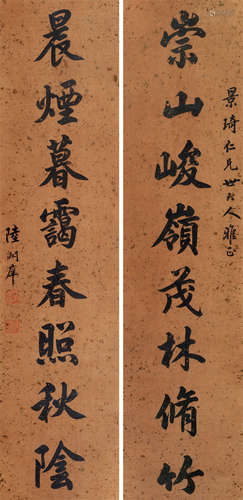 景琦仁兄世大人雅正
崇山峻嶺茂林脩竹
晨煙暮靄春煦秋陰
陸潤庠